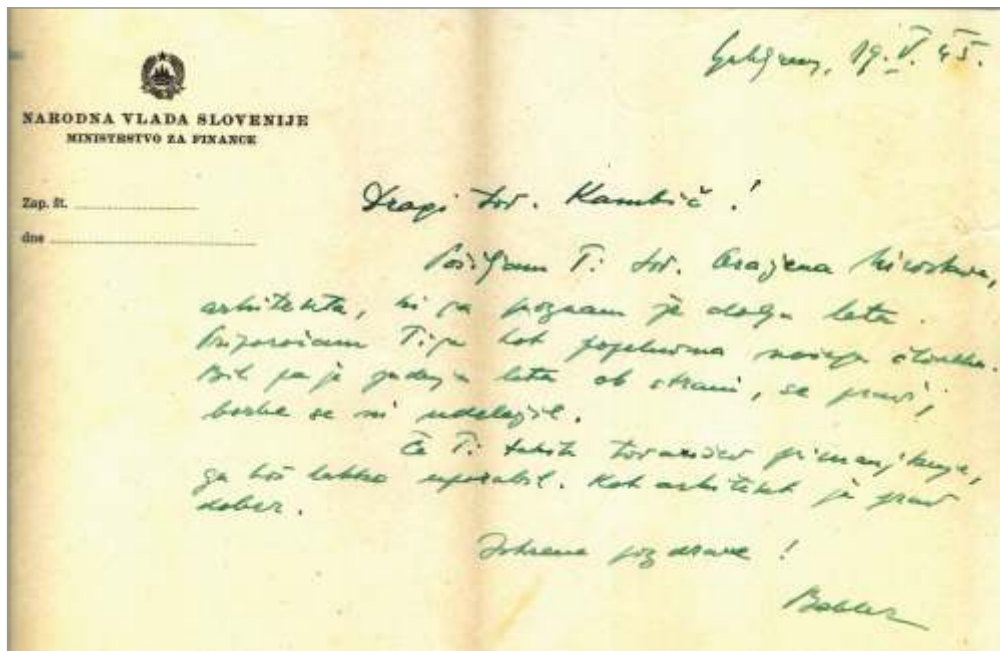 NARODNA VLADA SLOVENIJE
MINISTRSTVO ZA FINANCE
Zap. št.
dne
Ljubljana, 19. V. 45.
Dragi tov. Kambič!
Pošiljam Ti tov.
arhitekta, ki ga poznam že dolga leta.
Priporočam Ti ga kot popolnoma našega človeka.
Bil pa je zadnja leta ob strani, se pravi,
borbe se ni udeležil.
Če Ti takih tovarišev primanjkuje,
ga boš lahko uporabil. Kot arhitekt je prav
dober.
pozdrave!
Bebler